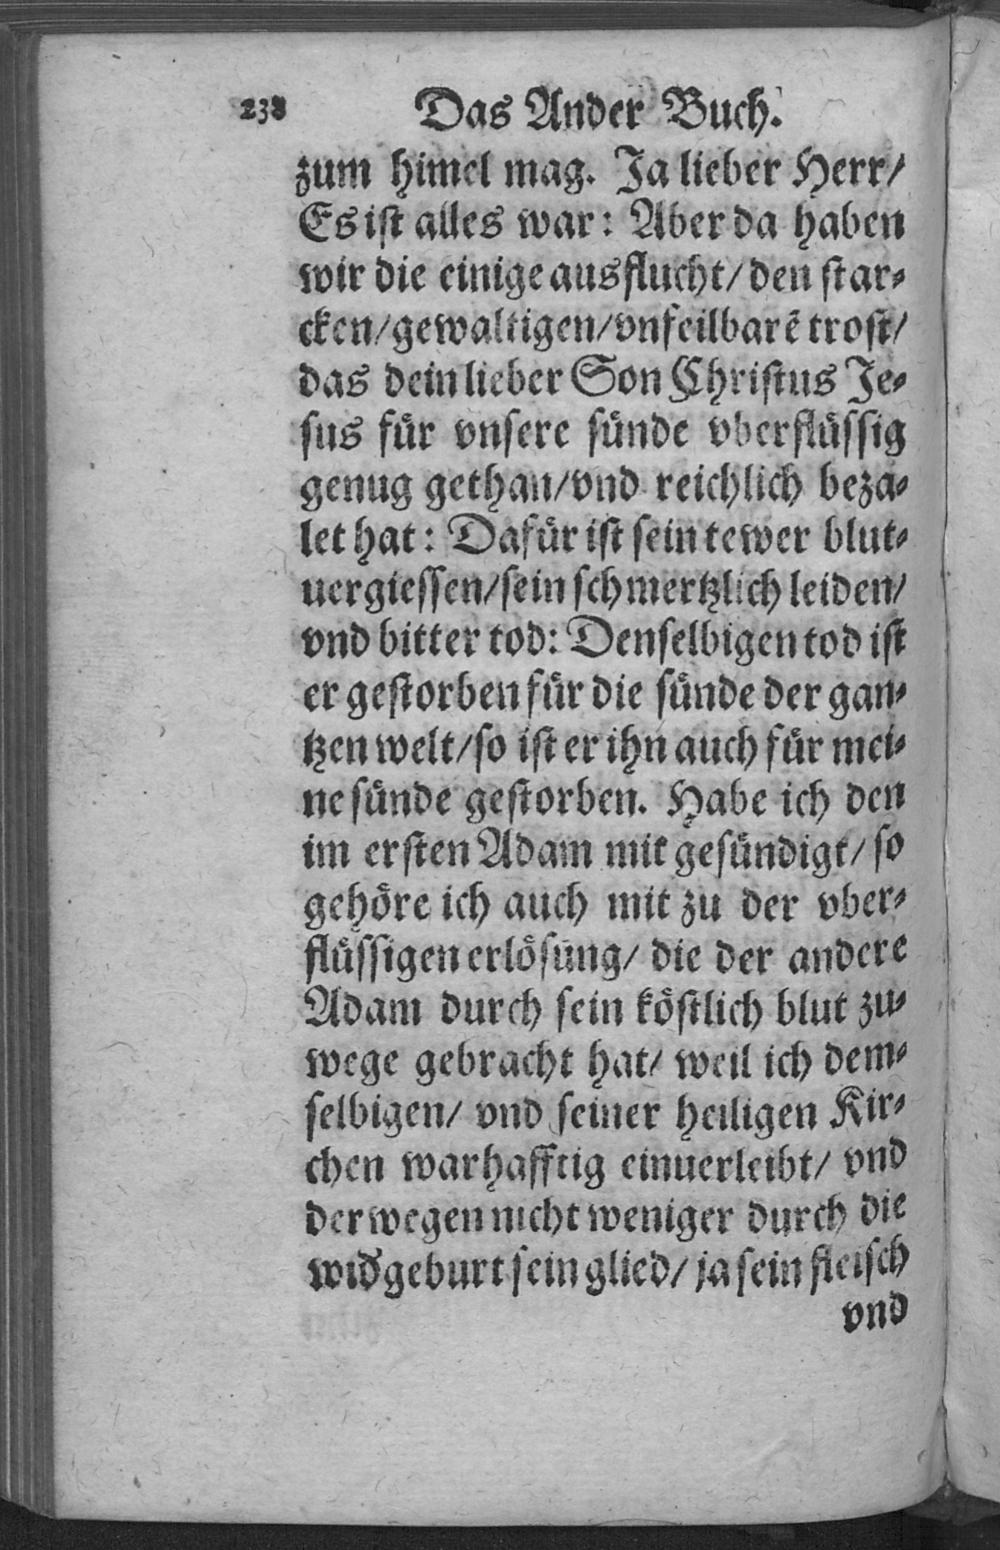 238 Das Ander Buch.
zum himel mag. Ja lieber Herr/
Es ist alles war: Aber da haben
wir die einige ausflucht/ den star⸗
cken/ gewaltigen/ vnfeilbarẽ trost/
das dein lieber Son Christus Je⸗
sus für vnsere sünde vberflüssig
genug gethan/ vnd reichlich beza⸗
let hat: Dafür ist sein tewer blut⸗
uergiessen/ sein schmertzlich leiden/
vnd bitter tod: Denselbigen tod ist
er gestorben für die sünde der gan⸗
tzen welt/ so ist er ihn auch für mei⸗
ne sünde gestorben. Habe ich den
im ersten Adam mit gesündigt/ so
gehöre ich auch mit zu der vber⸗
flüssigen erlösung/ die der andere
Adam durch sein köstlich blut zu⸗
wege gebracht hat/ weil ich dem⸗
selbigen/ vnd seiner heiligen Kir⸗
chen warhafftig einuerleibt/ vnd
derwegen nicht weniger durch die
widgeburt sein glied/ ja sein fleisch
vnd